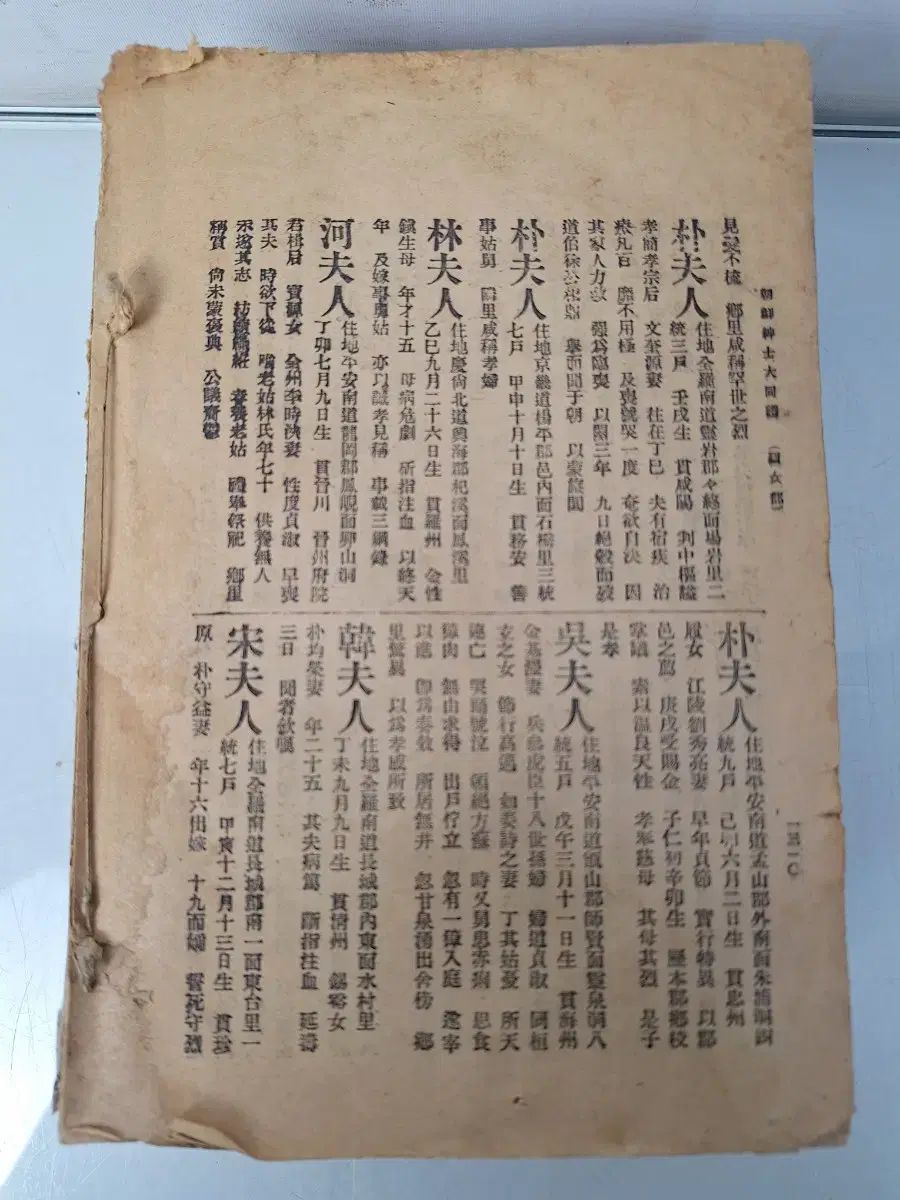 朝鮮紳士大同譜 (婦女部)
一三一〇
見髮不梳 鄕里咸稱罕世之烈
朴夫人
住地全羅南道靈岩郡々終面場岩里二
統三戶 壬戌生 貫咸陽 判中樞謚
孝簡孝宗后 文奎源妻 往在丁巳 夫有宿疾 治
療凡百 靡不用極 及喪號哭一度 奄欲自决 因
其家人力救 强爲臨喪 以闋三年 九日絕穀而歿
道伯徐公相鼎 舉而聞于朝 以蒙旌閭
朴夫人
住地京畿道楊平郡邑內面石橋里三統
七戶 甲申十月十日生 貫務安 善
事姑舅 隣里咸稱孝婦
林夫人
住地慶尙北道興海郡杞溪面鳳溪里
乙巳九月二十六日生 貫羅州 金性
鎭生母 年才十五 母病危劇 斫指注血 以終天
年 及嫁事舅姑 亦以誠孝見稱 事載三綱錄
河夫人
住地平安南道龍岡郡鳳覗面卵山洞
丁卯七月九日生 貫晉川 晉州府院
君楫后 寶源女 全州李時泱妻 性度貞淑 早喪
其夫 時欲下從 嗜老姑林氏年七十 供養無人
未遂其志 紡績織紝 奉養老姑 禮畢祭祀 鄕里
稱賞 尙未蒙褒典 公議齎鬱
朴夫人
住地平安南道孟山郡外南面朱浦洞四
統九戶 己卯六月二日生 貫忠州
履女 江陵劉秀亮妻 早年貞節 實行特異 以郡
邑之薦 庚戌受賜金 子仁初辛卯生 歷本郡鄕校
掌議 素以溫良天性 孝奉慈母 其母其烈 是子
是孝
吳夫人
住地平安南道甑山郡師賢面靈泉洞八
統五戶 戊午三月十一日生 貫海州
金基灃妻 兵參虎臣十八世孫婦 婦道貞淑 同桓
立之女 節行高邁 如姜詩之妻 丁其姑憂 所天
違亡 哭踊號泣 頓絕方蘇 時又舅患赤痢 思食
獐肉 無由求得 出戶佇立 忽有一獐入庭 遂宰
以進 卽爲奏效 所居無井 忽甘泉湧出舍傍 鄕
里驚異 以爲孝感所致
韓夫人
住地全羅南道長城郡內東面水村里
丁未九月九日生 貫淸州 錫零女
朴均榮妻 年二十五 其夫病篤 斷指注血 延壽
三日 聞者欽嘆
宋夫人
住地全羅南道長城郡南一面東台里一
統七戶 甲寅十二月十三日生 貫珍
原 朴守益妻 年十六出嫁 十九而孀 誓死守烈